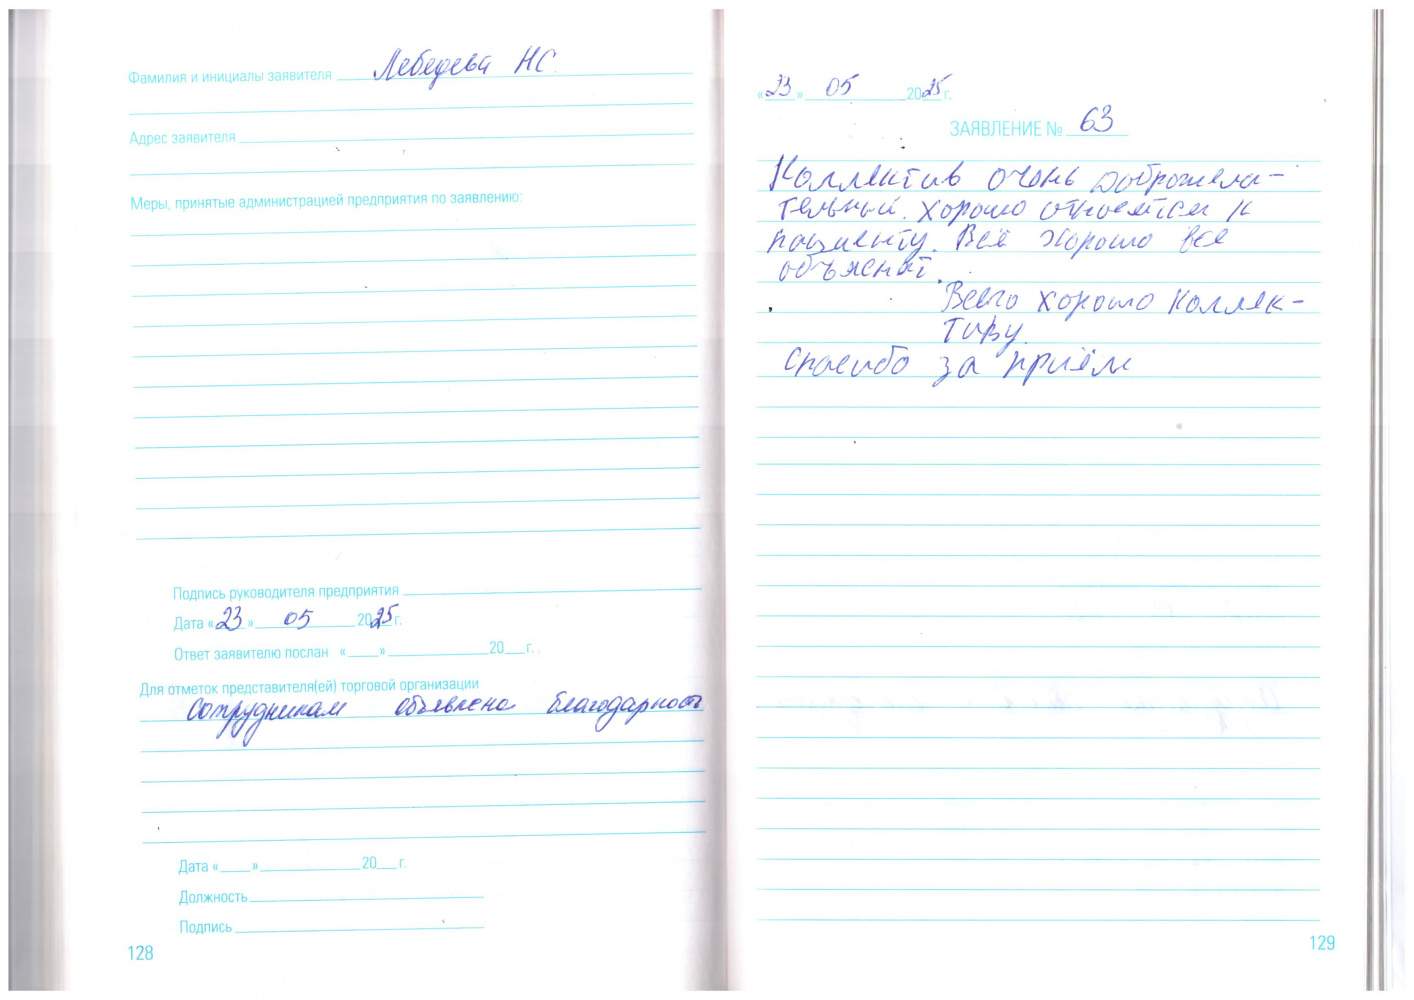 Фамилия и инициалы заявителя Лебедева НС.
Адрес заявителя
Меры, принятые администрацией предприятия по заявлению:
Подпись руководителя предприятия
Дата «23» 05 2025 г.
Ответ заявителю послан « » 20 г.
Для отметок представителя(ей) торговой организации
Сотрудникам объявлена благодарность
Дата « » 20 г.
Должность
Подпись
128
«23» 05 2025 г.
ЗАЯВЛЕНИЕ № 63
Коллектив очень доброжела-
тельный. Хорошо относятся к
пациенту. Всё хорошо все
объяснят.
Всего хорошо коллек-
тиву.
Спасибо за приём
129